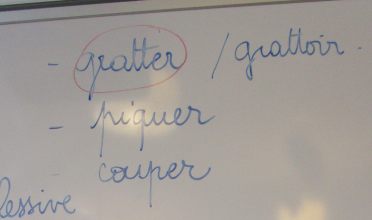 - gratter / grattoir.
- piquer
- couper
lessive